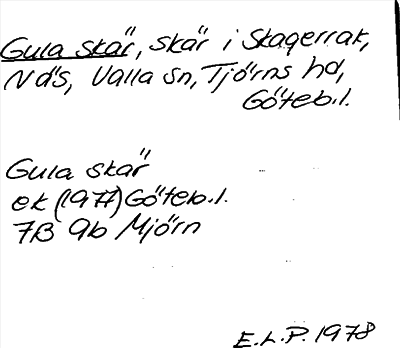 Gula skär, skär i Skagerrak,
N ås, Valla sn, Tjörns hd,
Göteb.l.
Gula skär
ek (1977) Göteb.l.
7B 9b Mjörn
E.L.P. 1978